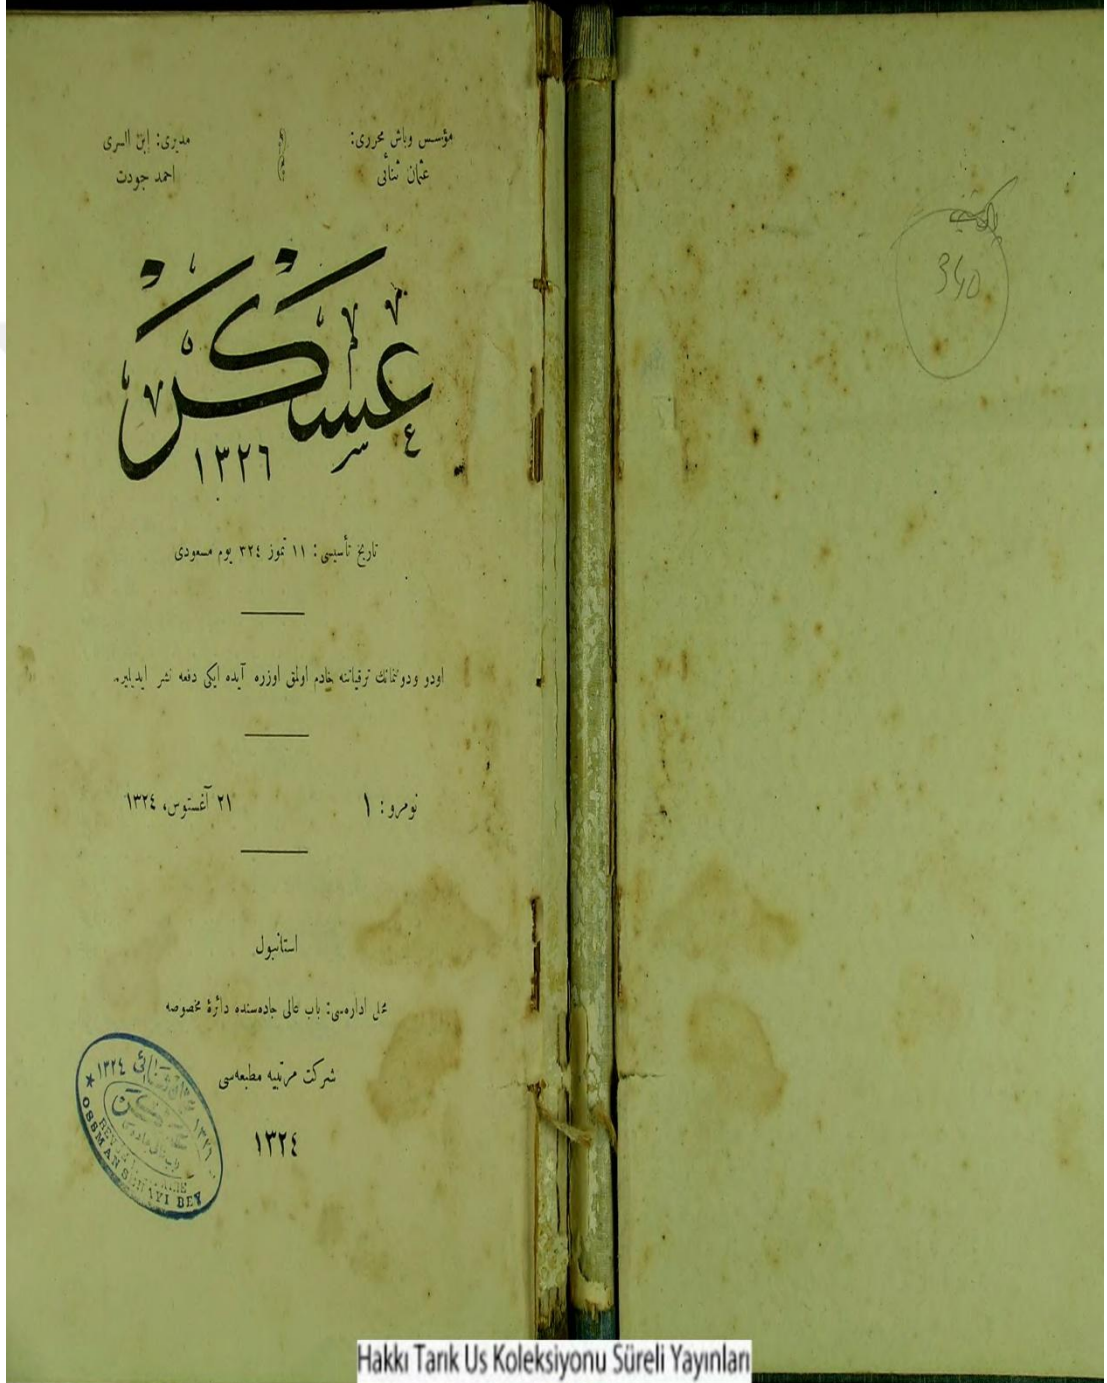 مؤسس وباش محرری:
عثمان ثنائی
مدیری: ابن السری
احمد جودت
عسکر
١٣٢٦
تاریخ تأسیسی: ١١ تموز ٣٢٤ یوم مسعودی
اوردو ودوننمانك ترقیاتنه خادم اولمق اوزره آیده ایکی دفعه نشر ایدیلیر.
نومرو: ١
٢١ آغستوس، ١٣٢٤
استانبول
محل اداره‌سی: باب عالی جاده‌سنده دائرۀ مخصوصه
شرکت مرتبیه مطبعه‌سی
١٣٢٤
١٣٢٤
١٣٢٦
OSSMAN SENAYI BEY
340
Hakkı Tarık Us Koleksiyonu Süreli Yayınları